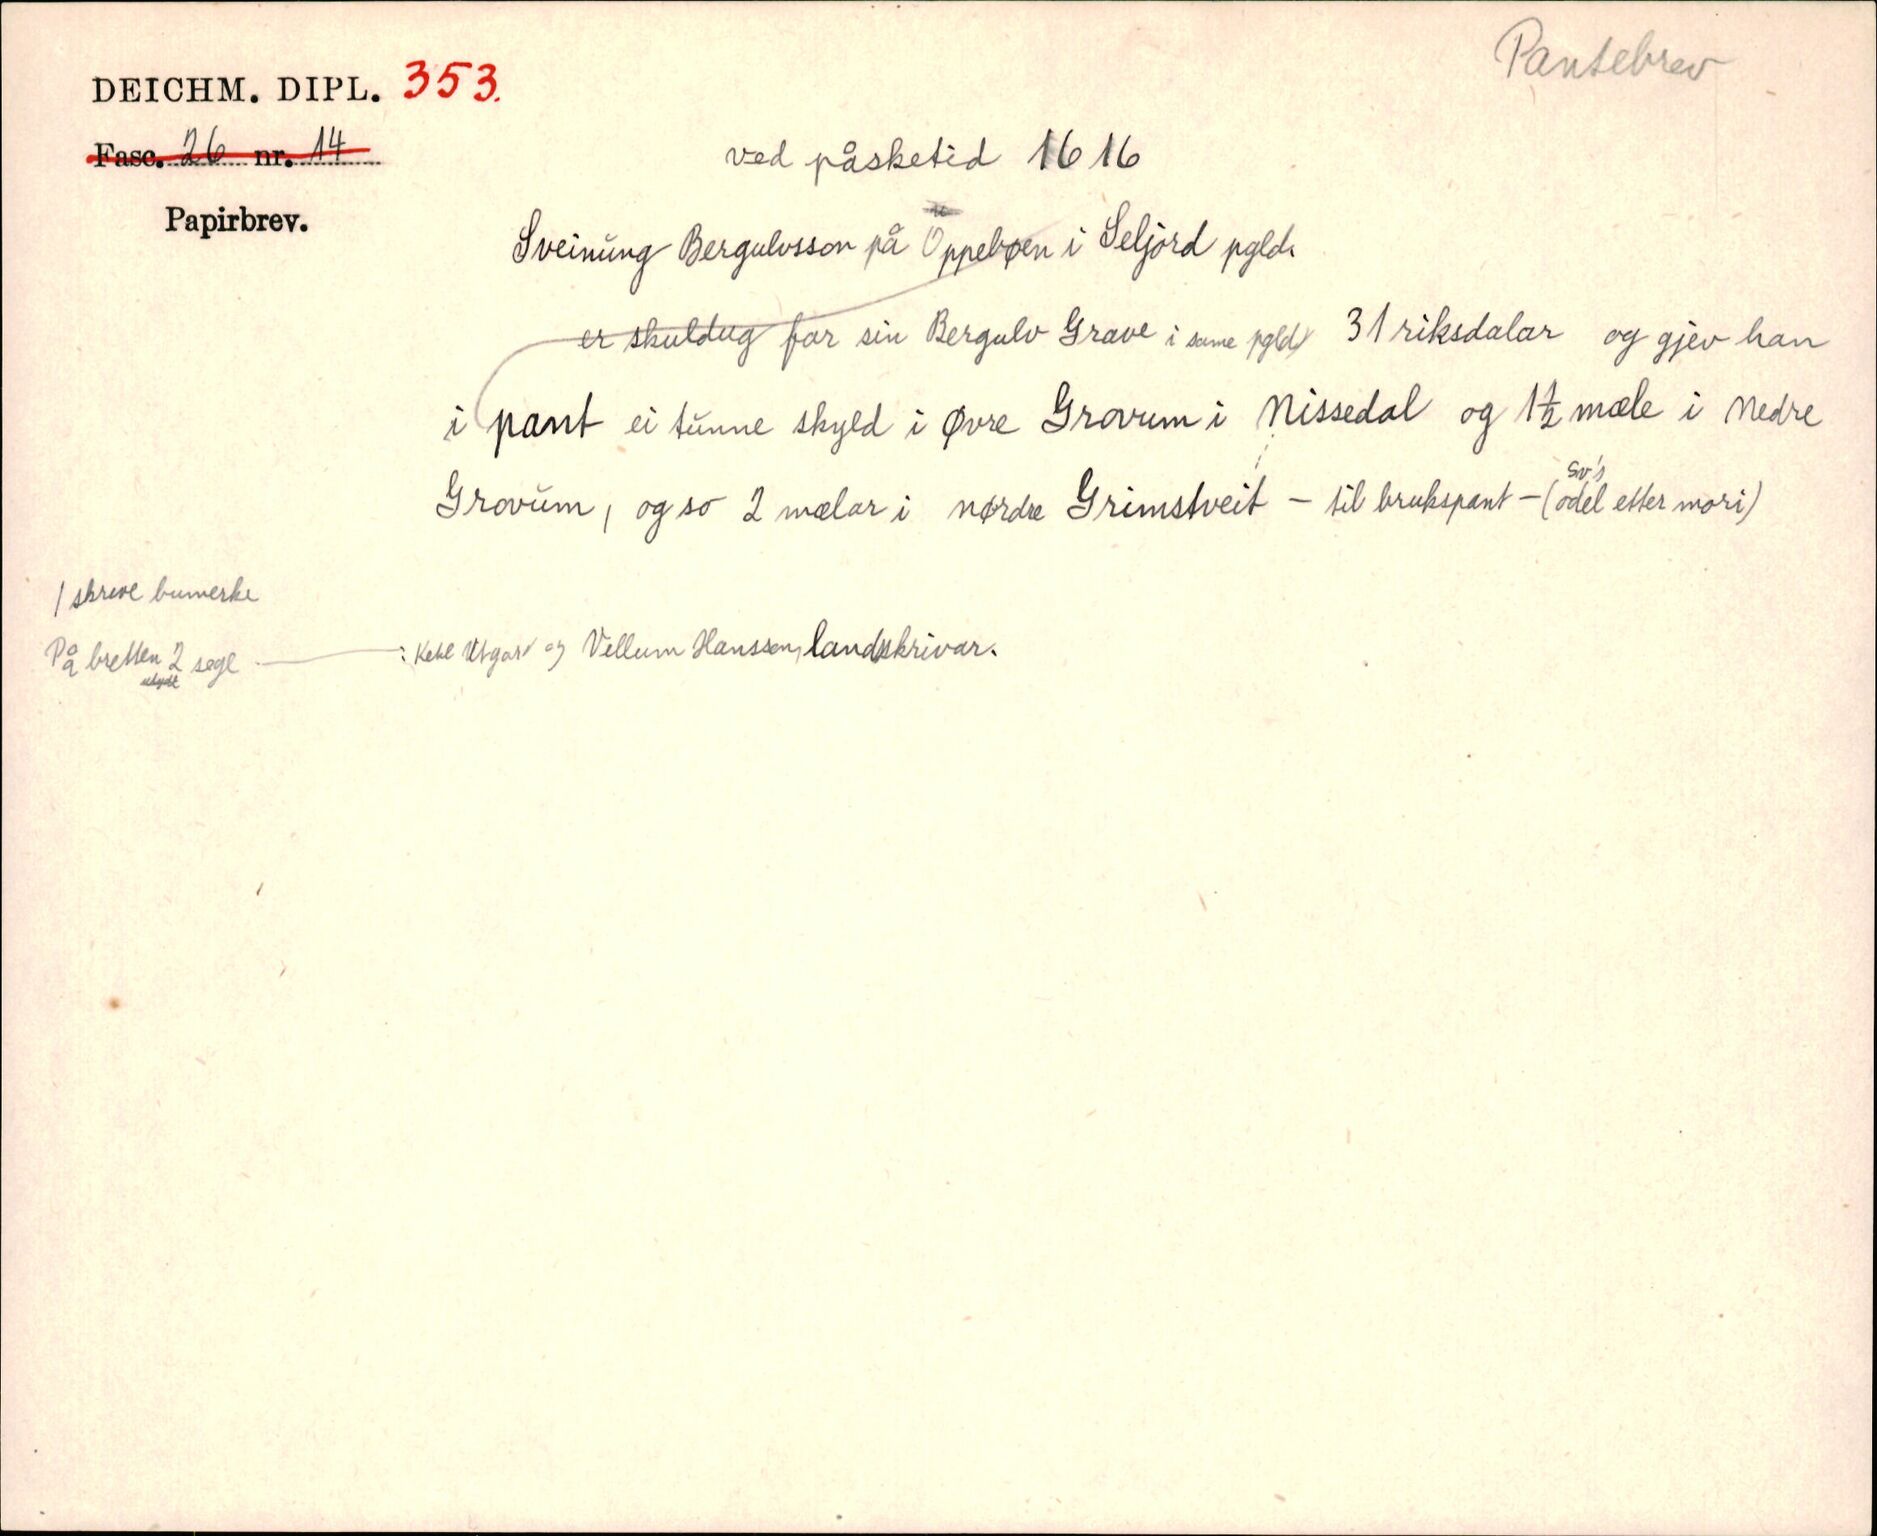 Pantebrev
DEICHM. DIPL. 353.
Fasc. 26 nr. 14
Papirbrev.
ved påsketid 1616
Sveinung Bergulvsson på Oppebøen i Seljord pgld.
er skuldug far sin Bergulv Grave i same pgld 31 riksdalar og gjev han
i pant ei tunne skyld i Øvre Grovum i Nissedal og 1 1/2 mæle i Nedre
Grovum, og so 2 mælar i nørdre Grimstveit - til brukspant - (Sv's odel etter mori)
1 skreve bumerke
På bretten 2 segl : Ketil Utgard og Vellum Hanssen, landskrivar.
utydt